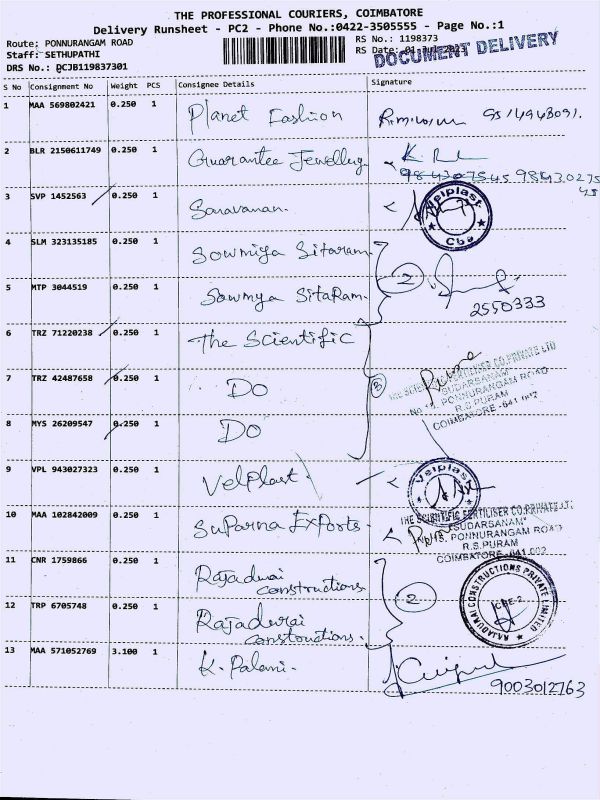 THE PROFESSIONAL COURIERS, COIMBATORE
Delivery Runsheet - PC2 - Phone No.:0422-3505555 - Page No.:1
Route: PONNURANGAM ROAD
Staff: SETHUPATHI
DRS No.: DCJB119837301
RS No.: 1198373
RS Date: 01-Jul-2023
DOCUMENT DELIVERY
S No Consignment No Weight PCS Consignee Details Signature
1 MAA 569802421 0.250 1 Planet Fashion
2 BLR 2150611749 0.250 1 Guarantee Jewellery
9843027545 98430275
45
3 SVP 1452563 0.250 1 Saravanan.
Velplast
Cbe
4 SLM 323135185 0.250 1 Sowmiya Sitaram
5 MTP 3044519 0.250 1 Sowmya SitaRam. 2
2550333
6 TRZ 71220238 0.250 1 The Scientific
7 TRZ 42487658 0.250 1 Do 3
THE SCIENTIFIC FERTILISER CO.PRIVATE LTD
"SUDARSANAM"
No 15, PONNURANGAM ROAD
R.S.PURAM
COIMBATORE-641 002
8 MYS 26209547 0.250 1 Do
9 VPL 943027323 0.250 1 Velplast.
Velplast
10 MAA 102842009 0.250 1 SuParna Exports
THE SCIENTIFIC FERTILISER CO.PRIVATE LTD
"SUDARSANAM"
No 15, PONNURANGAM ROAD
R.S.PURAM
COIMBATORE-641 002
11 CNR 1759866 0.250 1 Rajadurai
constructions
12 TRP 6705748 0.250 1 Rajadurai
constructions. 2
RAJADURAI CONSTRUCTIONS PRIVATE LIMITED
CBE-2
13 MAA 571052769 3.100 1 K. Palani.
9003012763